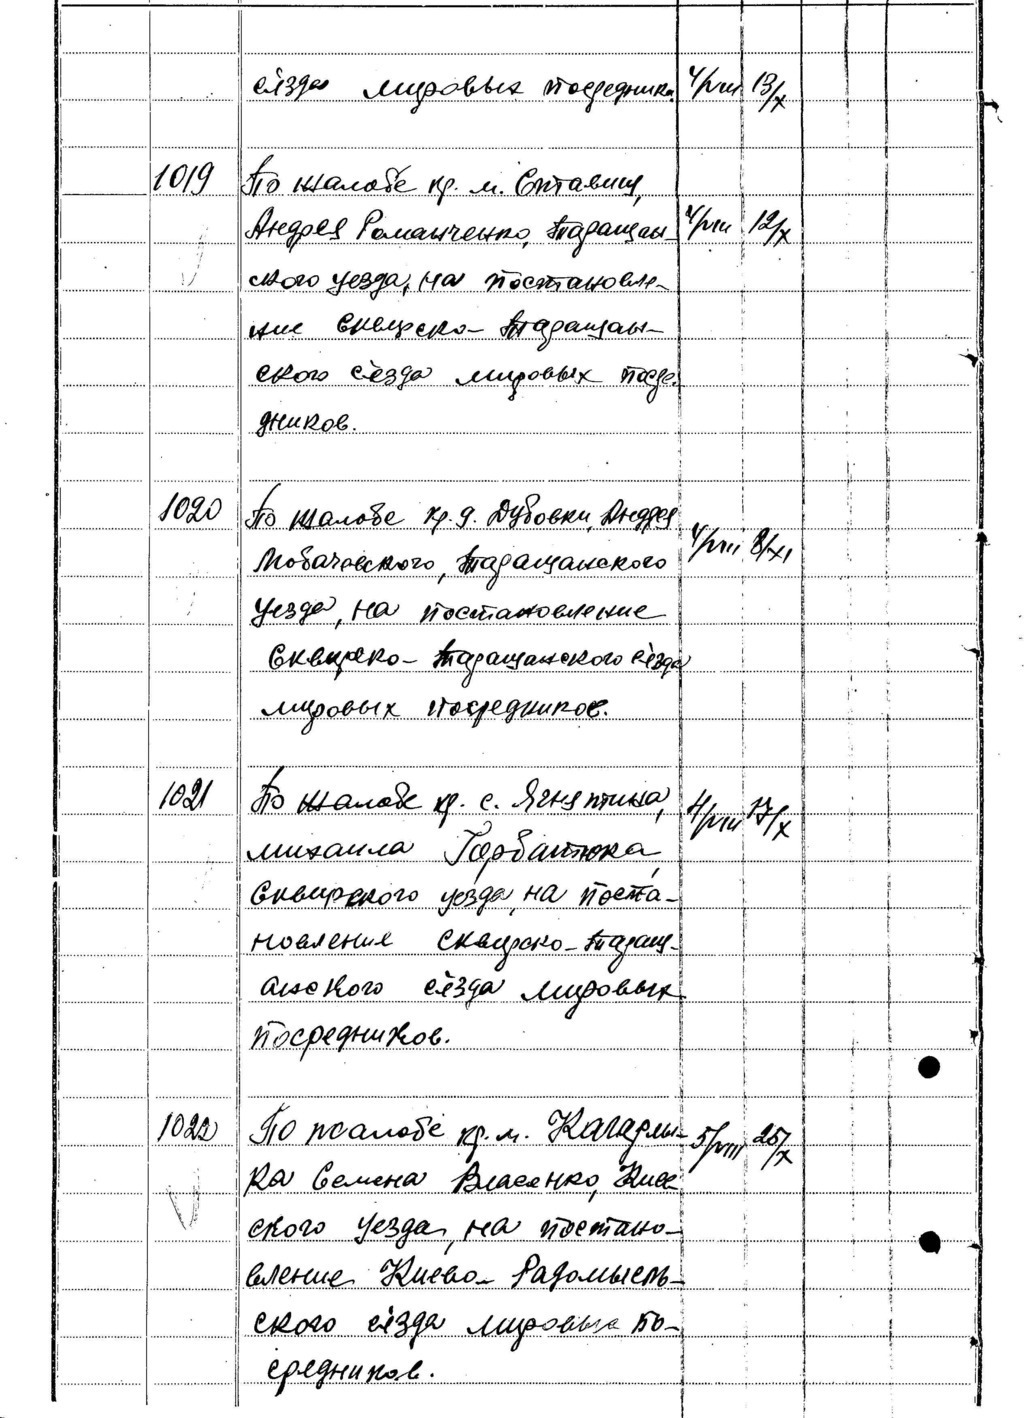 съезда мировых посредников. 4/VIII 13/X
1019 По жалобе кр. м. Ставищ,
Андрея Романченко, Таращан- 4/VIII 12/X
ского уезда, на постановле-
ние Сквирско-Таращан-
ского съезда мировых посре-
дников.
1020 По жалобе кр. д. Дубовки, Андрея
Таращанского 4/VIII 8/XI
уезда, на постановление
Сквирско-Таращанского съезда
мировых посредников.
1021 По жалобе кр. с.
Михаила Горбатюка, 4/VIII 17/X
Сквирского уезда, на поста-
новление Сквирско-Таращ-
анского съезда мировых
посредников.
1022 По жалобе кр. м. Кагарлы- 5/VIII 25/X
ка Семена Власенко, Киев-
ского уезда, на постано-
вление Киево-Радомысль-
ского съезда мировых по-
средников.